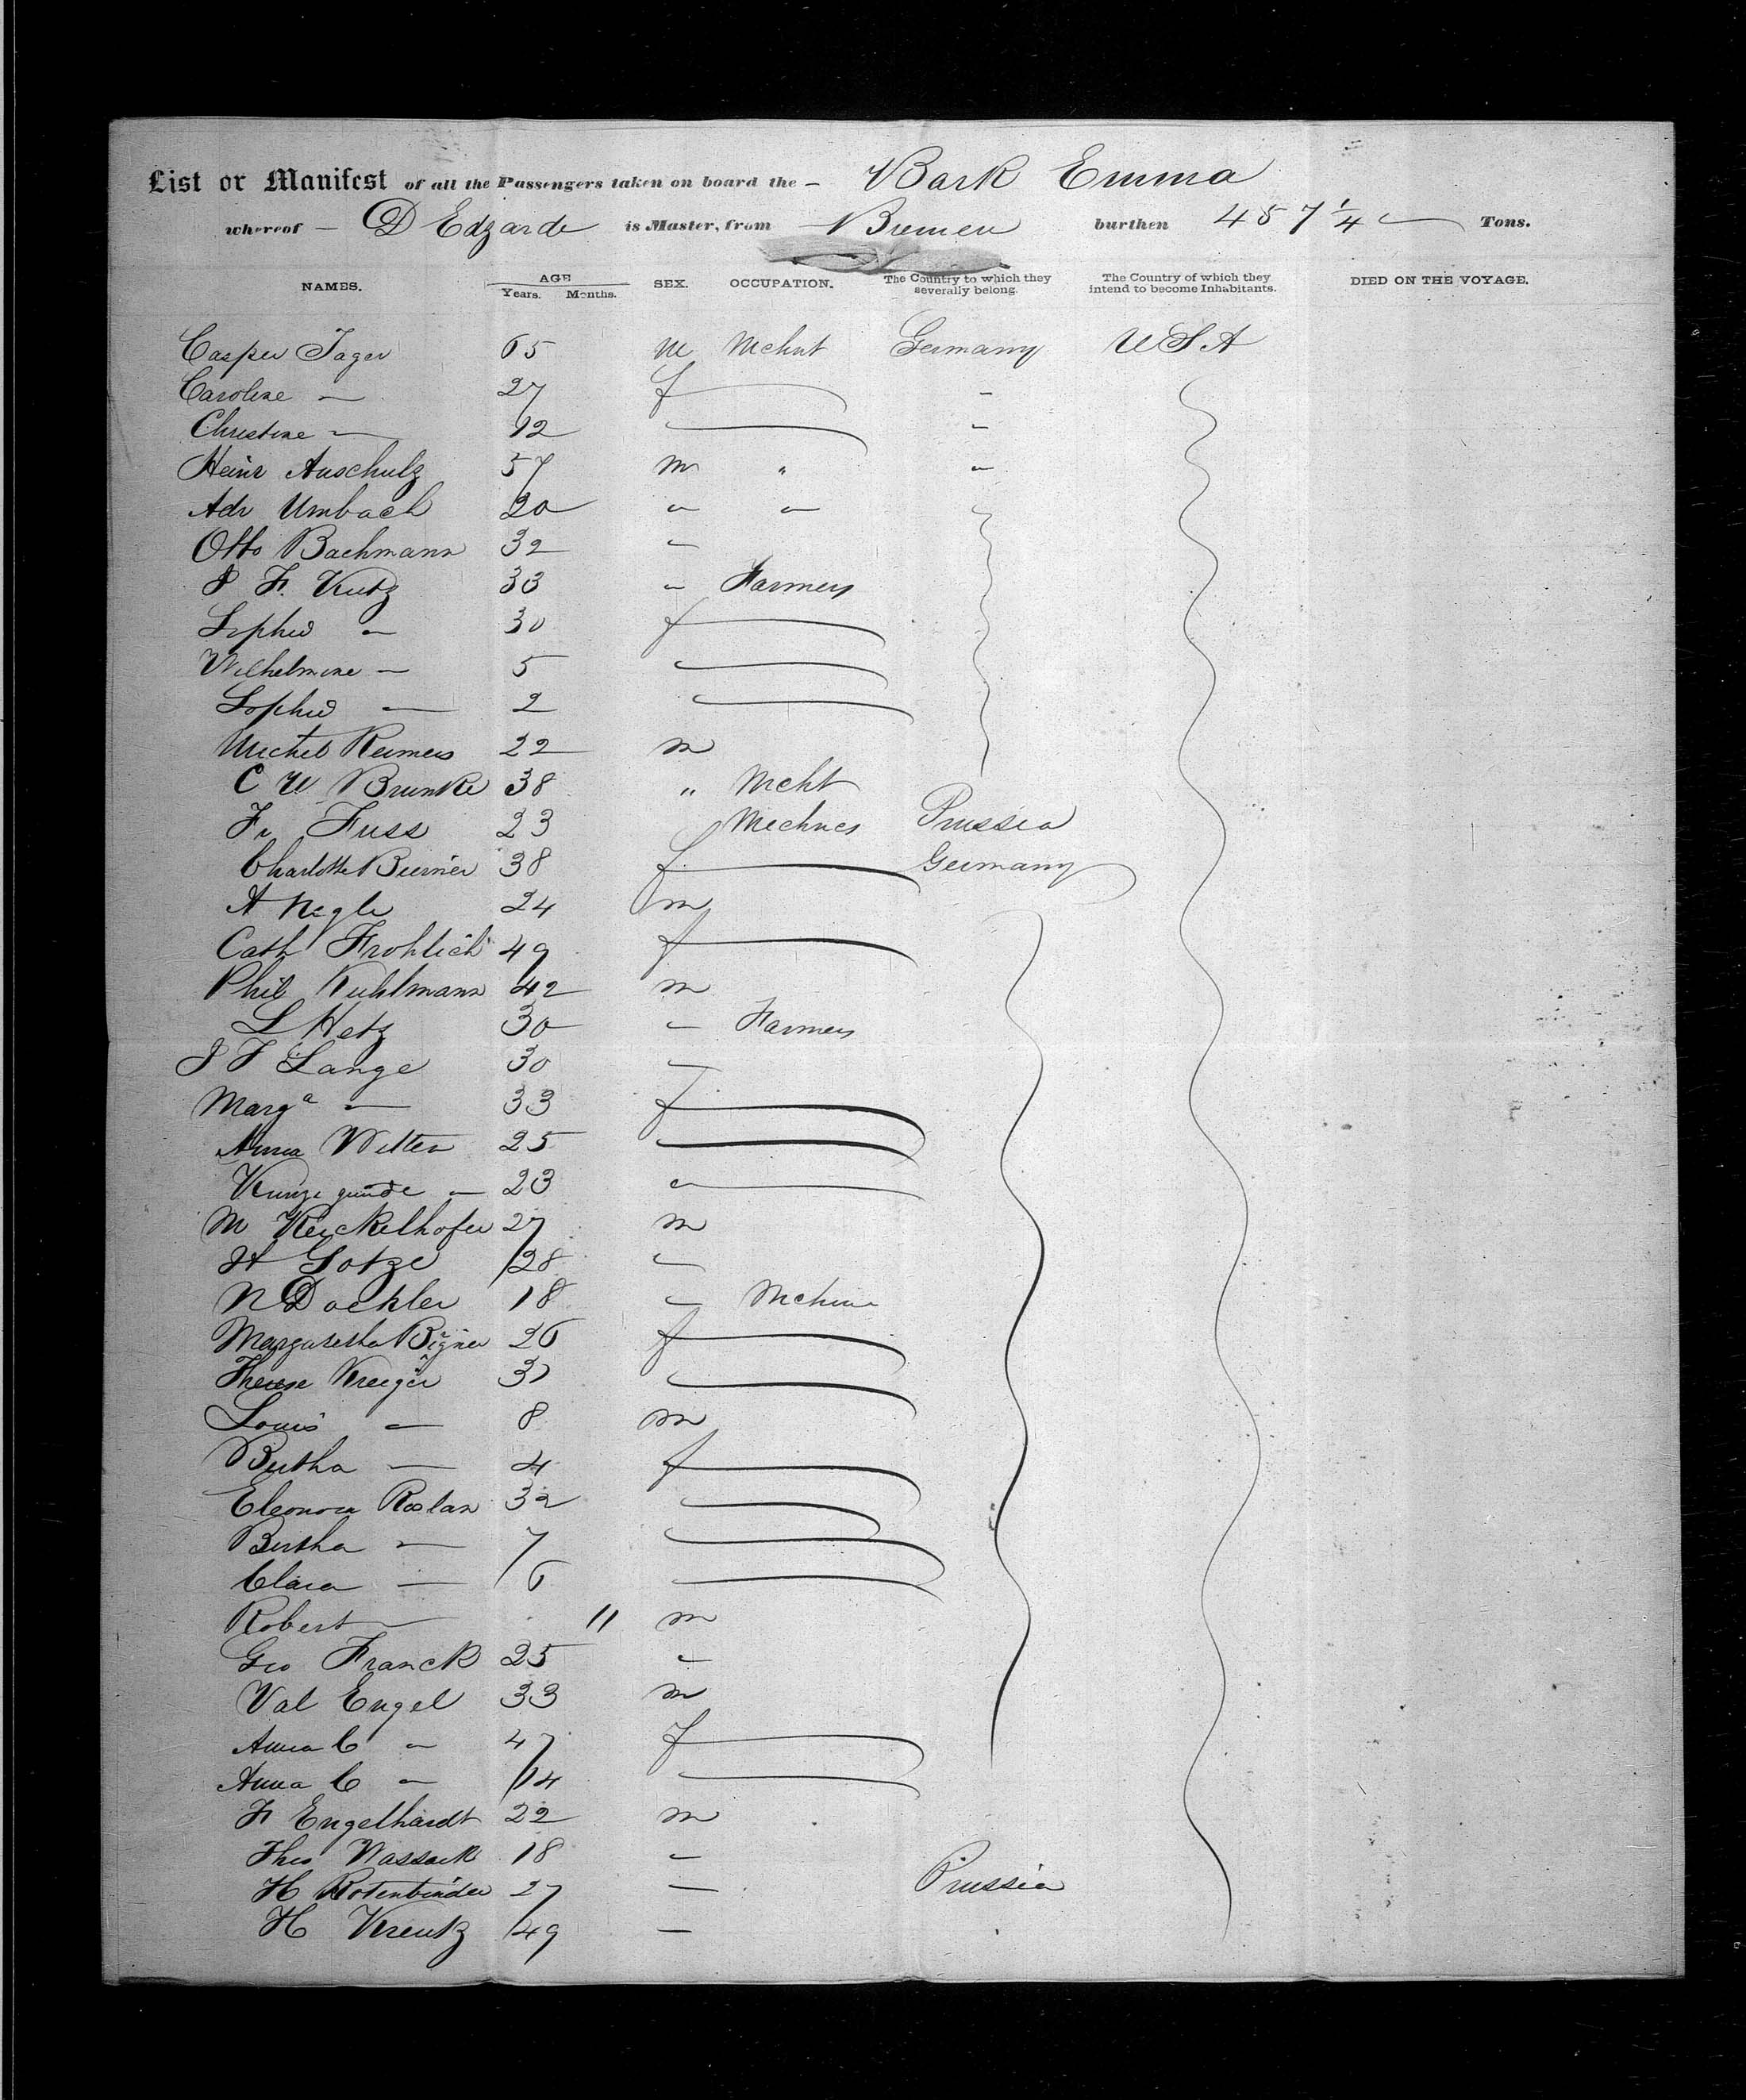 List or Manifest of all the Passengers taken on board the - Bark Emma
whereof - D Edzarde is Master, from Bremen burthen 457 1/4 Tons.
NAMES. AGE Years. Months. SEX. OCCUPATION. The Country to which they severally belong. The Country of which they intend to become Inhabitants. DIED ON THE VOYAGE.
Casper Jager 65 m Mchnt Germany USA
Caroline — 27 f —
Christine — 12 —
Heinr Auschulz 57 m "
Adr Umbach 20
Otto Bachmann 32
J F. Kutz 33 Farmers
Sophie — 30 f
Wilhelmine — 5
Sophie — 2
Michel Reimers 22 m
C W Brunke 38 " Mcht
Fr Fuss 23 Mechncs Prussia
Charlotte 38 f Germany
A Nigle 24 m
Cath Frohlich 49 f
Phil Kuhlmann 42 m
L Hetz 30 Farmers
J F Lange 30
Marga — 33 f
Anna Witten 25
Kunigunde — 23
M 27 m
H Gotze 28
N Dochler 18
Margaretha 26 f
Therese Kreiger
Louis — 8 m
Bertha — 4 f
Eleonora Roslan 32
Bertha — 7
Clara — 6
Robert — 11 m
Geo Franck 25
Val Engel 33 m
Anna C — 47 f
Anna C — 14
F Engelhardt 22 m
Theo Wassack 18
H Rotenbinder 27 — Prussia
H Kreutz 49 —